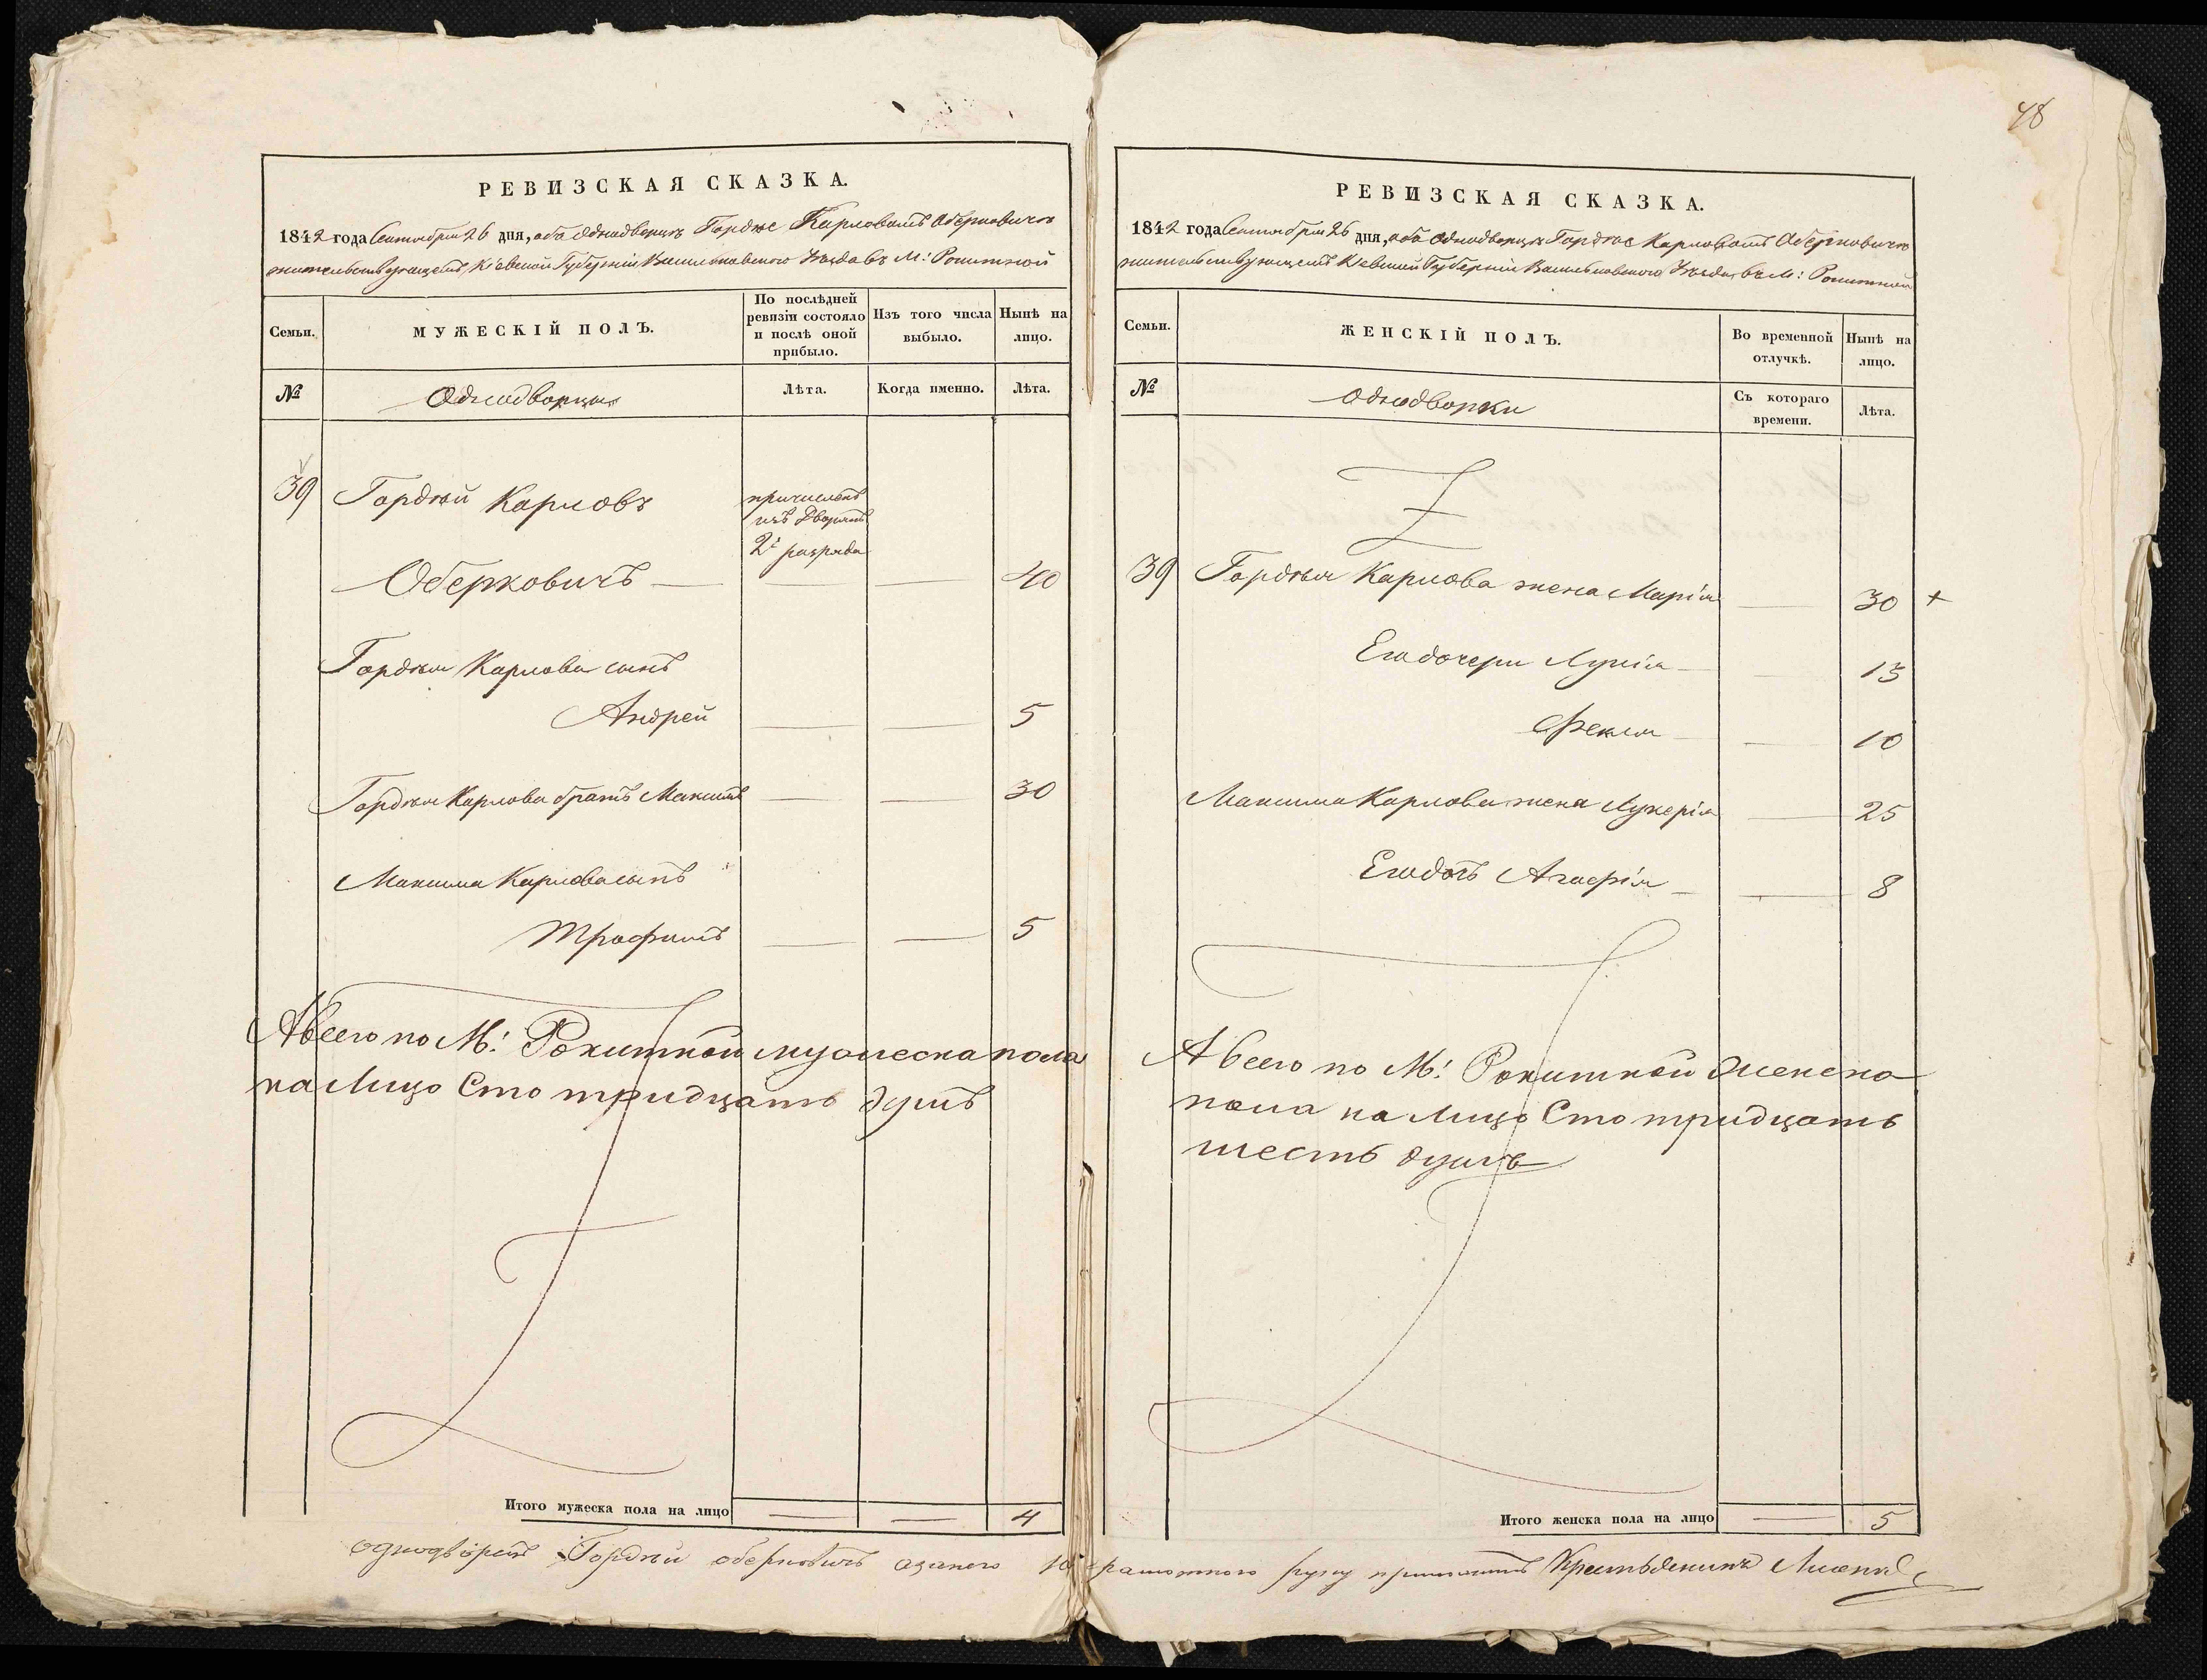 48
РЕВИЗСКАЯ СКАЗКА.
1842 года Сентября 26 дня, обо Однодворцѣ Гордѣе Карловомъ Оберковичѣ
жительствующемъ Кіевской Губерніи Васильковскаго Уѣзда въ М: Рокитной
Семьи.
МУЖЕСКІЙ ПОЛЪ.
По послѣдней ревизіи состояло и послѣ оной прибыло.
Изъ того числа выбыло.
Нынѣ на лицо.
№
Однодворцы
Лѣта.
Когда именно.
Лѣта.
39 Гордѣй Карловъ
причисленъ
изъ Дворянъ
2го разряда
Оберковичъ — — — 40
Гордѣя Карлова сынъ
Андрей — — 5
Гордѣя Карлова братъ Максимъ — — 30
Максима Карлова сынъ
Трофимъ — — 5
А всего по М: Рокитной мужеска пола
на лицо Сто тридцать душъ
Итого мужеска пола на лицо — — 4
РЕВИЗСКАЯ СКАЗКА.
1842 года Сентября 26 дня, обо Однодворцѣ Гордѣе Карловомъ Оберковичѣ
жительствующемъ Кіевской Губерніи Васильковскаго Уѣзда, въ М: Рокитной
Семьи.
ЖЕНСКІЙ ПОЛЪ.
Во временной отлучкѣ.
Нынѣ на лицо.
№
Однодворки
Съ котораго времени.
Лѣта.
39 Гордѣя Карлова жена Марія — 30 +
Его дочери Лукія — — 13
Фекла — — 10
Максима Карлова жена Лукерія — 25
Его дочь Агафія — — 8
А всего по М: Рокитной женска
пола на лицо Сто тридцать
шесть душъ
Итого женска пола на лицо — 5
однодворецъ Гордѣй Оберковичъ а за него неграмотного руку приложилъ Крестьянинъ